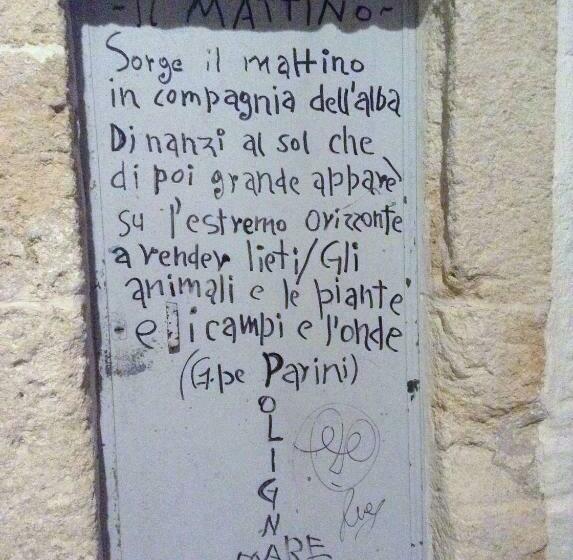 -IL MATTINO-
Sorge il mattino
in compagnia dell'alba
Dinanzi al sol che
di poi grande apparè
su l'estremo orizzonte
a render lieti/Gli
animali e le piante
e li campi e l'onde
(G.pe Parini)
O
L
I
G
N
MARE